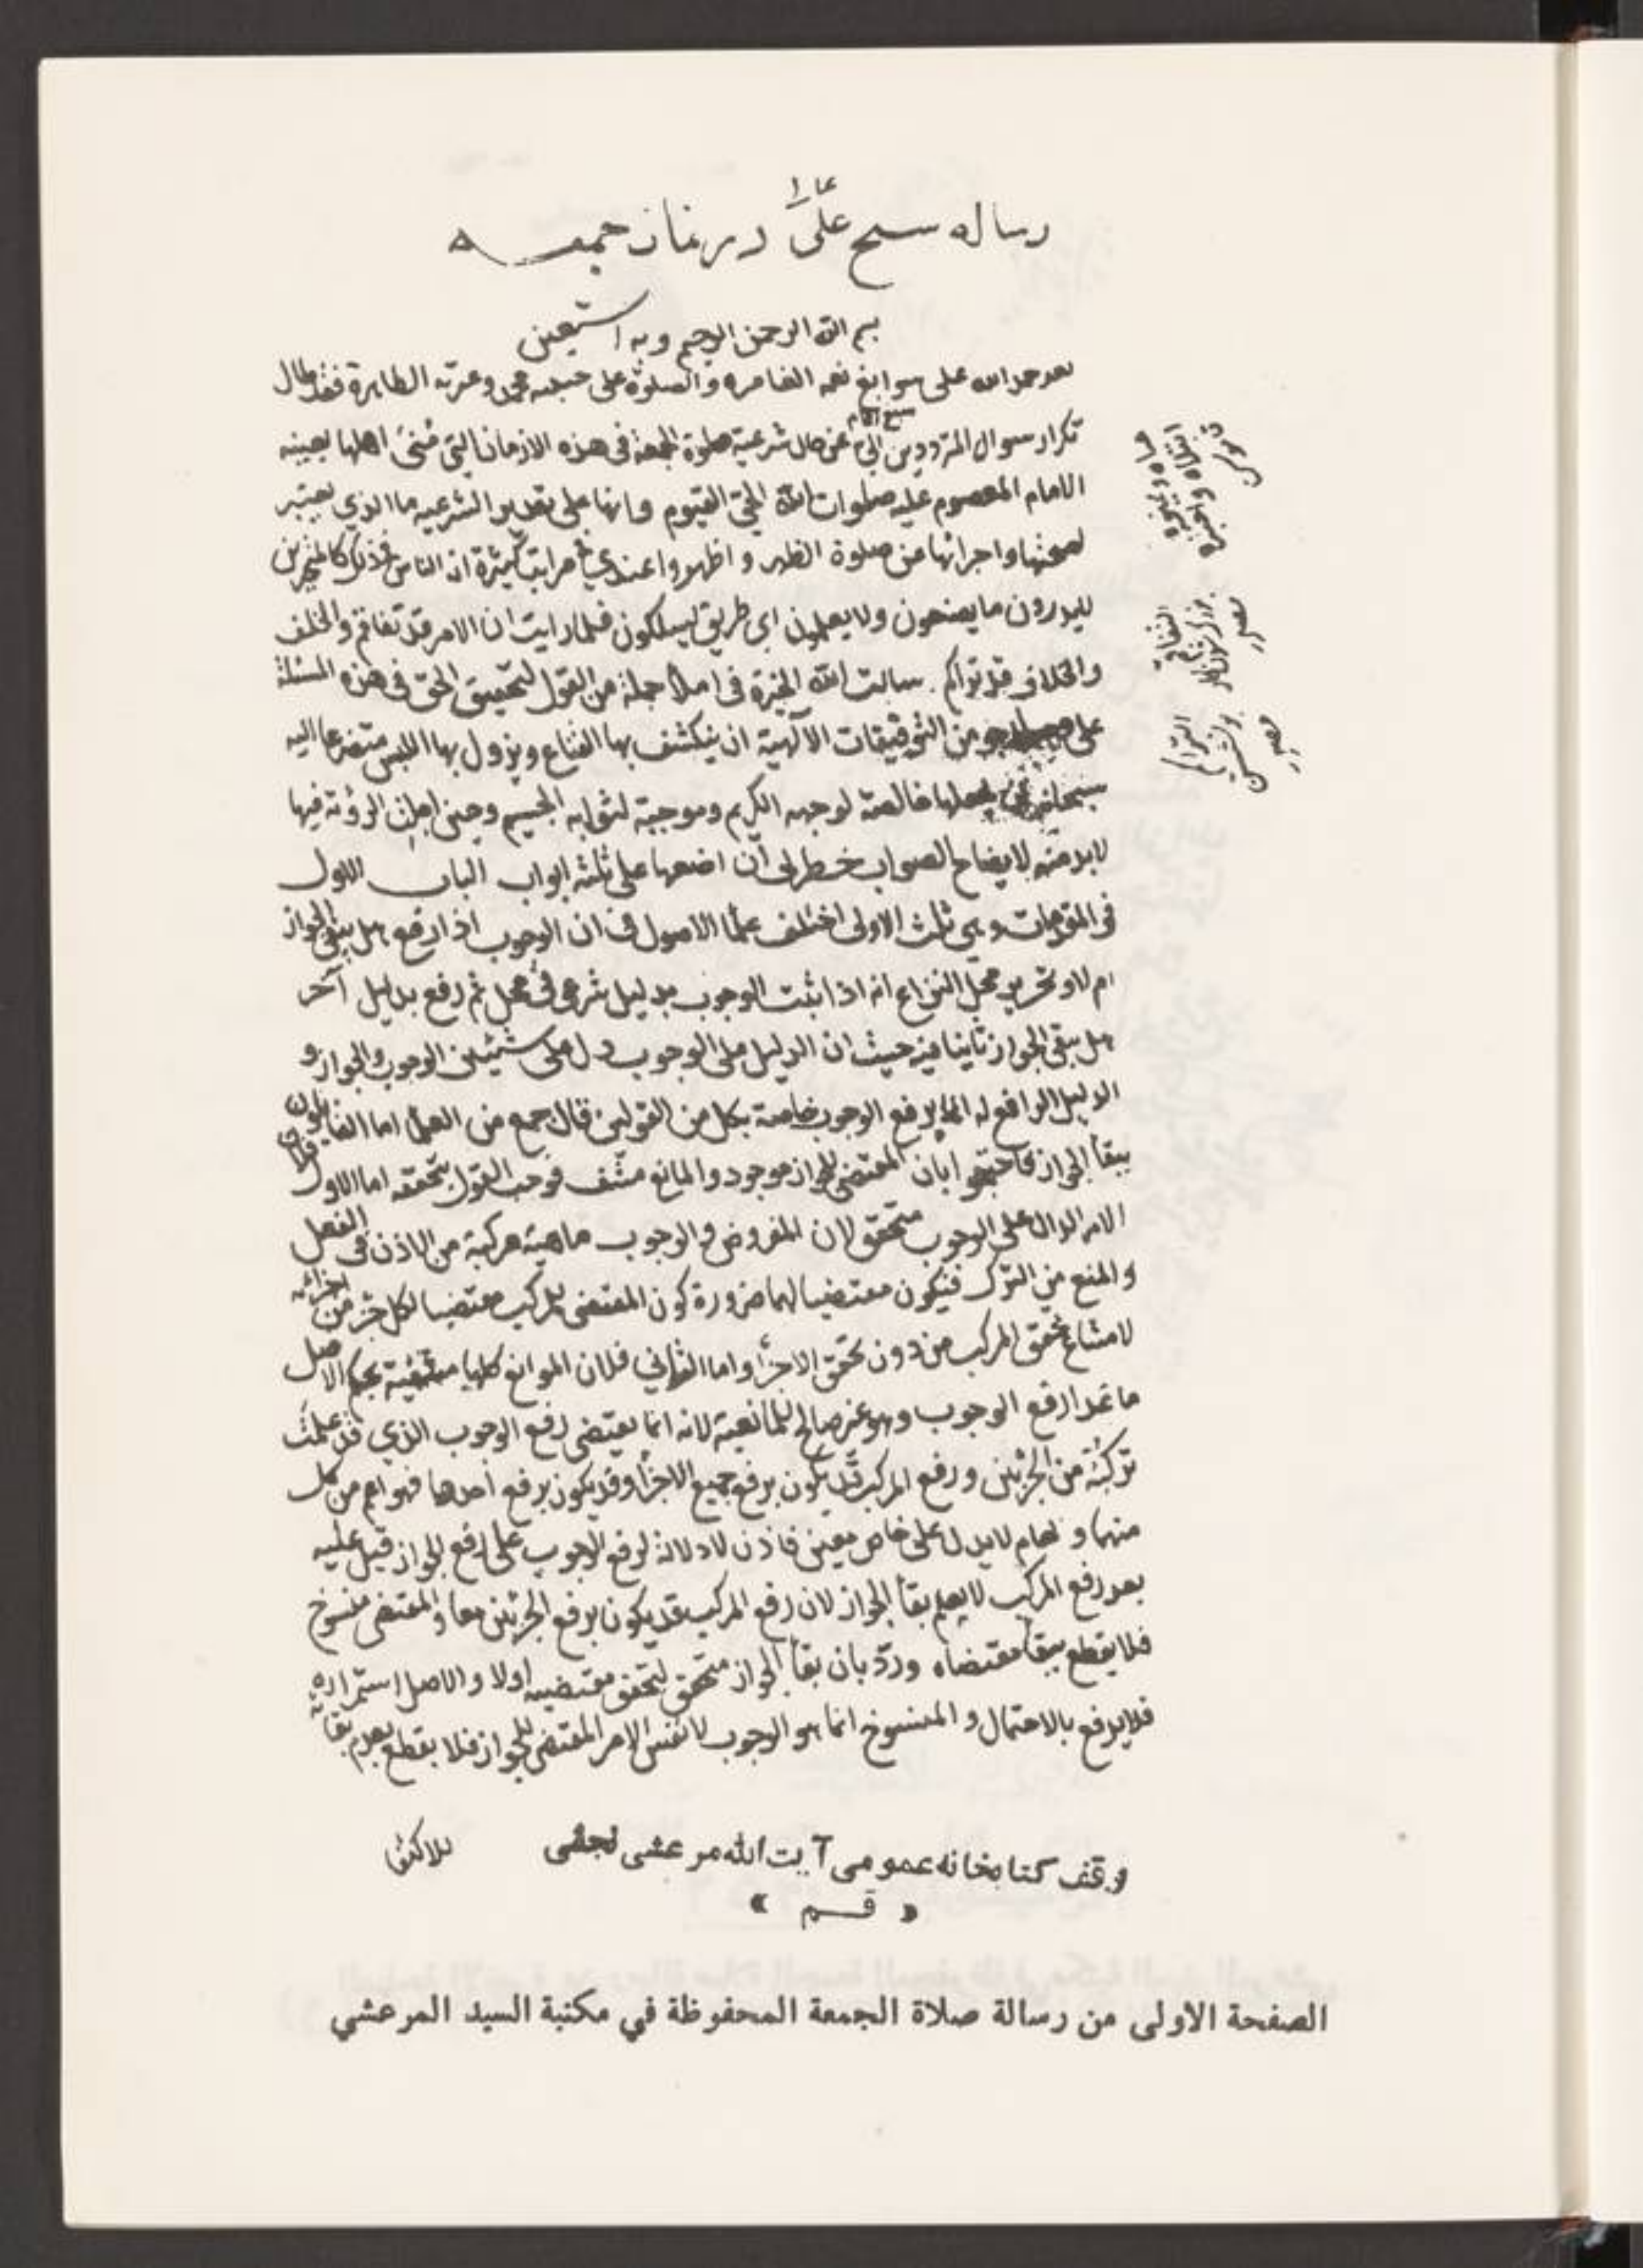 رساله شيخ على در نماز جمعه
بسم الله الرحمن الرحيم وبه استعين
بعد حمد الله على سوابغ نعمه الغامره والصلوة على حبيبه محمد وعترته الطاهرة فقد طال
تكرار سوال المترددين الى عن حال شرعية صلوة الجمعة فى هذه الازمان التي منى اهلها بغيبة
الامام المعصوم عليه صلوات الله الحي القيوم وانها على تقدير الشرعيه ما الذي يعتبر
لصحتها واجزائها من صلوة الظهر واظهروا عندي مرات كثيرة ان الناس في ذلك كالمتحيرين
لايدرون ما يصنعون ولا يعلمون اي طريق يسلكون فلما رايت ان الامر قد تفاقم والخلف
والخلاف قد تراكم سالت الله الخيرة فى املأ جملة من القول لتحقيق الحق فى هذه المسئلة
على من التوفيقات الآلهية ان ينكشف بها القناع ويزول بها اللبس متضرعا اليه
سبحانه فى يجعلها خالصة لوجهه الكريم وموجبة لثوابه الجسيم وحين لم يكن فيها
لابد منه لايضاح الصواب خطر لى ان اضعها على ثلثة ابواب الباب الاول
في المقدمات وهي ثلث الاولى اختلف علمأ الاصول في ان الوجوب اذا رفع هل يبقى الجواز
ام لا وتحرير محل النزاع انه اذا ثبت الوجوب بدليل شرعي في محل ثم رفع بدليل آخر
هل يبقى الجواز ثابتا فيه حيث ان الدليل على الوجوب دل على شيئين الوجوب والجواز و
الدليل الرافع له انما يرفع الوجوب خاصة بكل من القولين قال جمع من العلمأ اما القايلون
ببقأ الجواز فاحتجوا بان المقتضى للجواز موجود والمانع منتف فوجب القول بتحققه اما الاول فلان
الامر الدال على الوجوب متحقق لان المفروض والوجوب ماهية مركبة من الاذن في الفعل
والمنع من الترك فيكون مقتضيا لهما ضرورة كون المقتضى للمركب مقتضيا لكل جزء من اجزائه
لامتناع تحقق المركب من دون تحقق الاجزأ واما الثاني فلان الموانع كلها منتفية بحكم الاصل
ما عدا رفع الوجوب وهو غير صالح للمانعية لانه انما يقتضى رفع الوجوب الذي قد علمت
تركبه من الجزئين ورفع المركب قد يكون برفع جميع الاجزأ وقد يكون برفع احدها فهو اعم من كل
منهما و العام لايدل على خاص معين فاذن لا دلالة لرفع الوجوب على رفع الجواز قيل عليه
بعد رفع المركب لا يعلم بقأ الجواز لان رفع المركب قد يكون برفع الجزئين معا والمقتضى منسوخ
فلا يقطع ببقأ مقتضاه وردّ بان بقأ الجواز متحقق لتحقق مقتضيه اولا والاصل استمراره
فلا يرفع بالاحتمال والمنسوخ انما هو الوجوب لا نفس الامر المقتضى للجواز فلا يقطع بعدم بقائه
وقف كتابخانه عمومى آيت الله مرعشى نجفى
« قم »
الصفحة الاولى من رسالة صلاة الجمعة المحفوظة في مكتبة السيد المرعشي